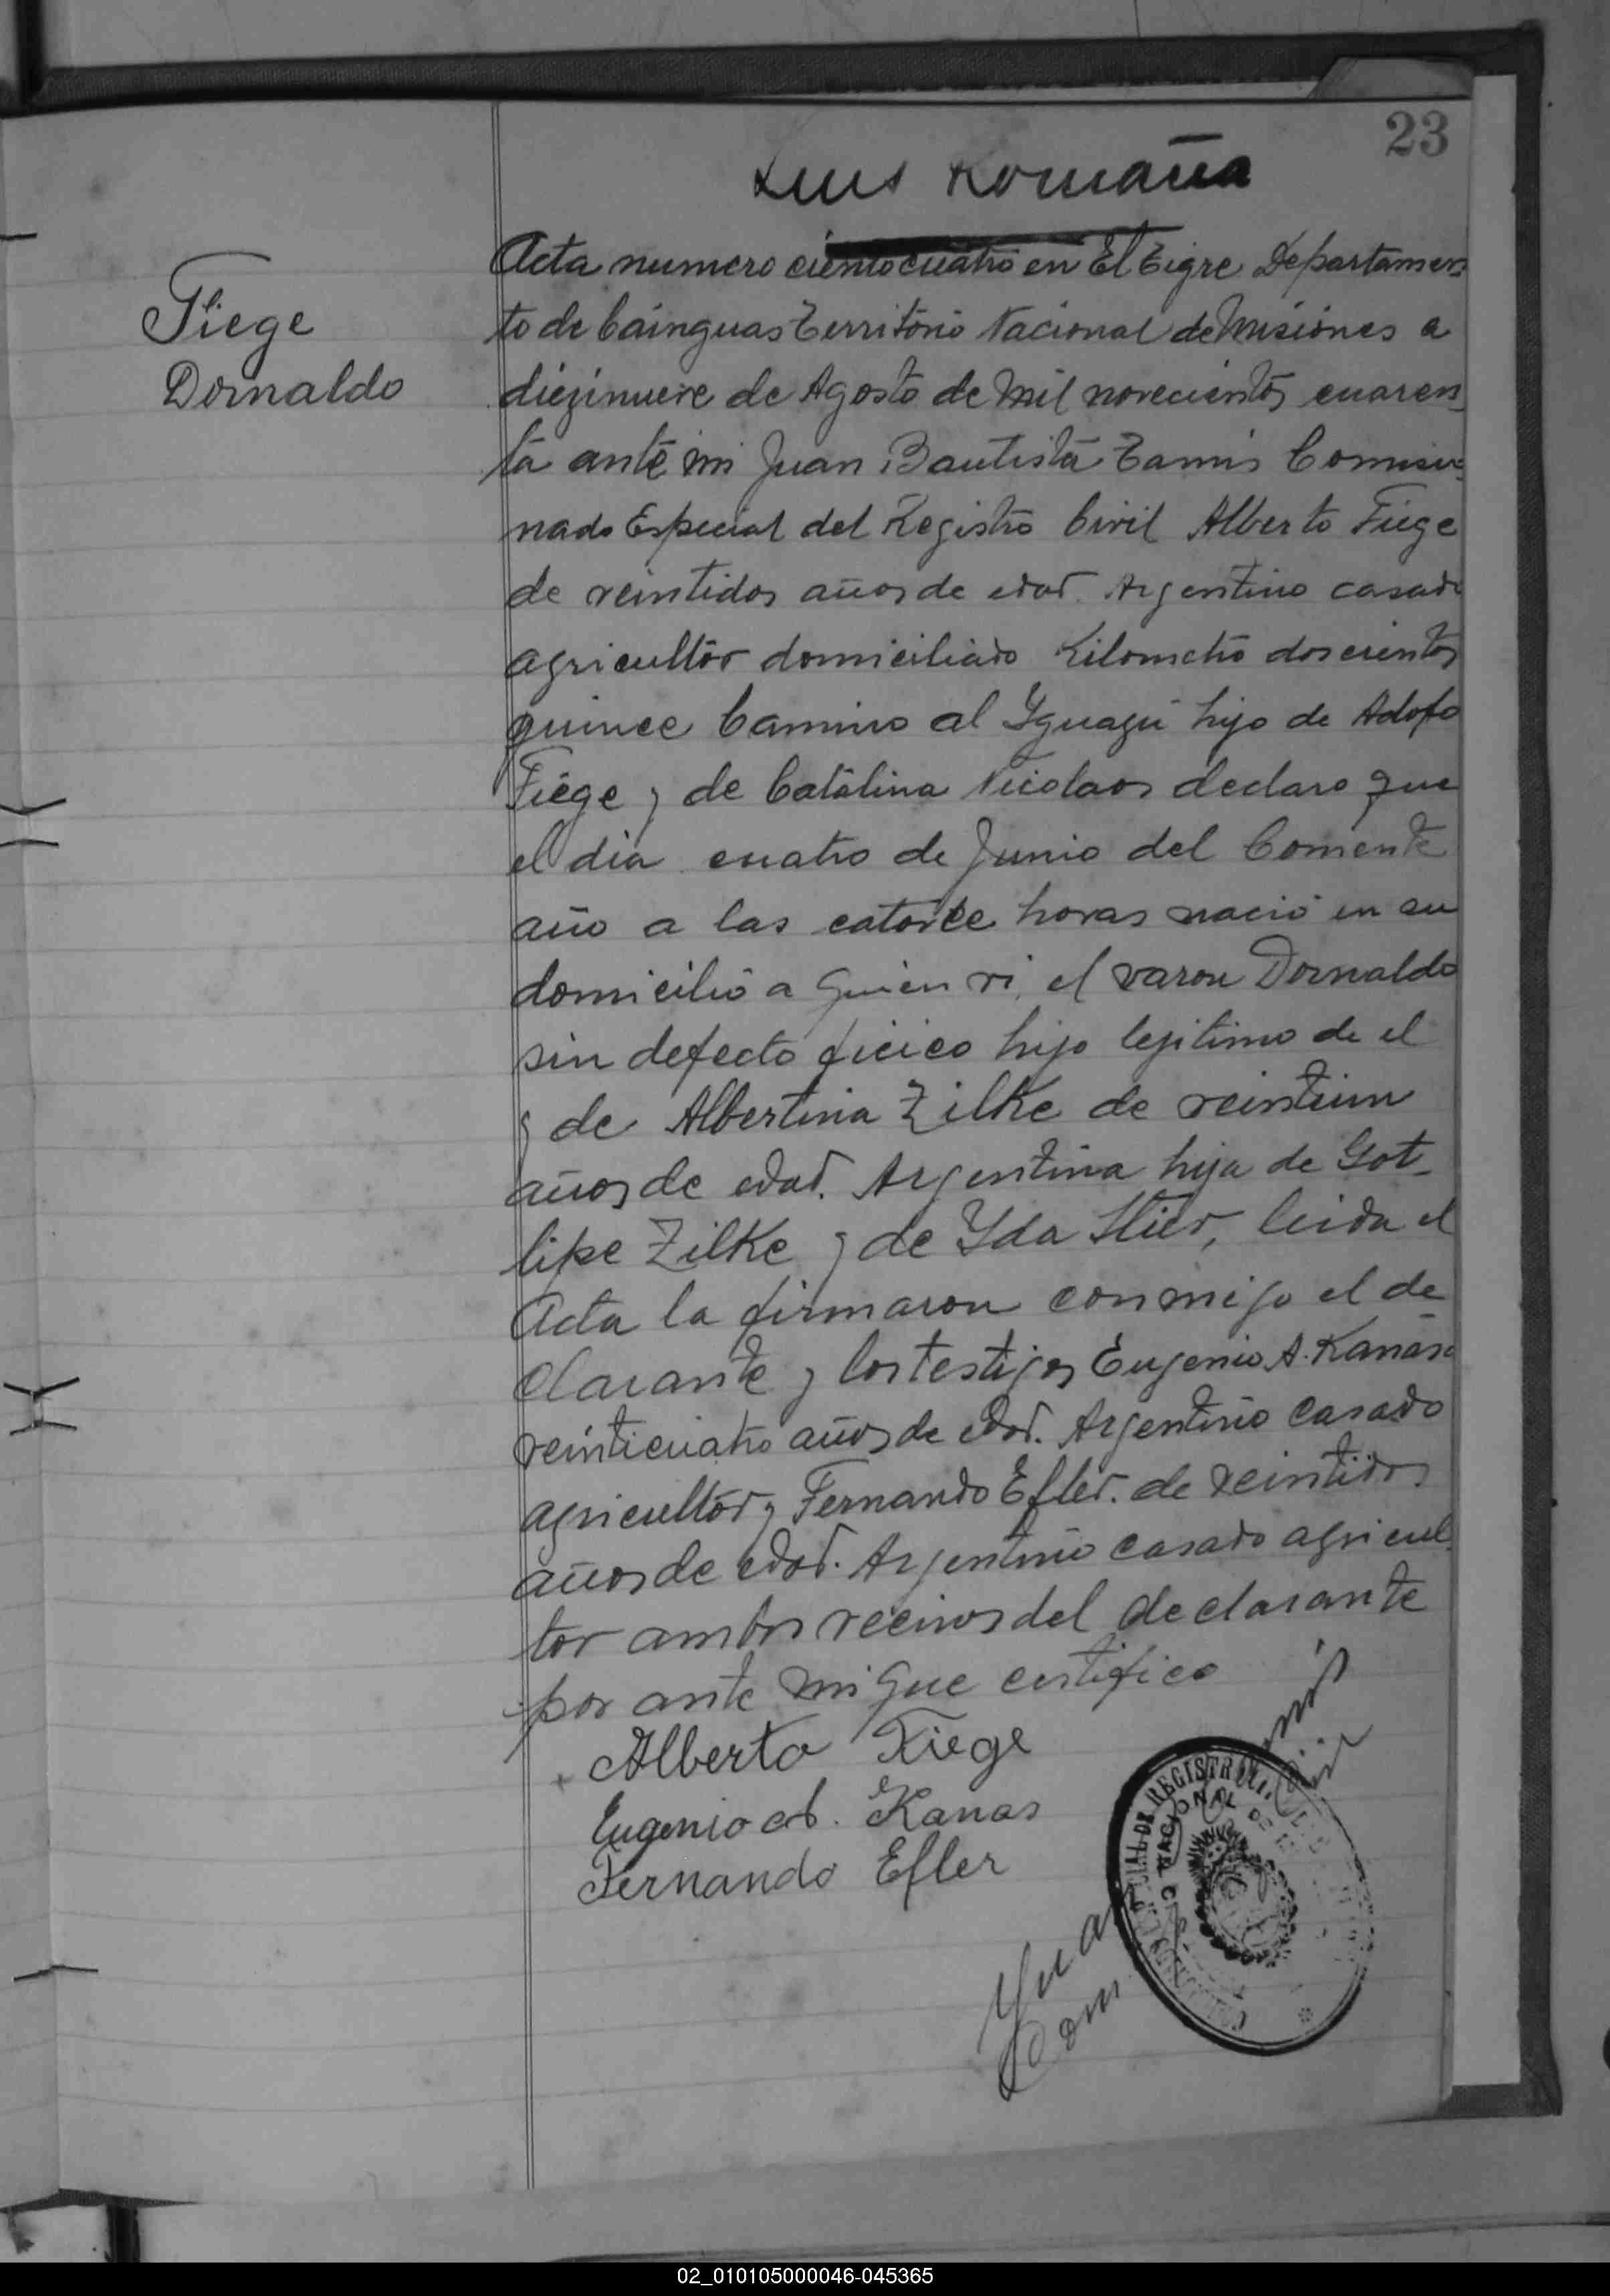 23
Luis Romaña
Fiege
Dornaldo
Acta numero ciento cuatro en El Tigre Departamen-
to de Cainguas Territorio Nacional de Misiones a
diezinueve de Agosto de mil novecientos cuaren-
ta ante mi Juan Bautista Tamis Comisio-
nado Especial del Registro Civil Alberto Fiege
de veintidos años de edad. Argentino casado
agricultor domiciliado Kilometro doscientos
quince Camino al Yguazú hijo de Adofo
Fiege y de Catalina Nicolaos declaro que
el dia cuatro de Junio del Corriente
año a las catorce horas nació en su
domicilio a quien vi, el varon Dornaldo
sin defecto ficico hijo legitimo de el
y de Albertina Zilke de veintiun
años de edad. Argentina hija de Got-
lipe Zilke y de Yda Stier, leida el
Acta la firmaron conmigo el de-
clarante y los testigos Eugenio A. Kanas
veinticuatro años de edad. Argentino casado
agricultor y Fernando Efler. de veintidos
años de edad. Argentino casado agricul-
tor ambos vecinos del declarante
por ante mi que certifico
Alberto Fiege
Eugenio A. Kanas
Fernando Efler
Juan
Com
REGISTRO
NACIONAL DE
02_010105000046-045365